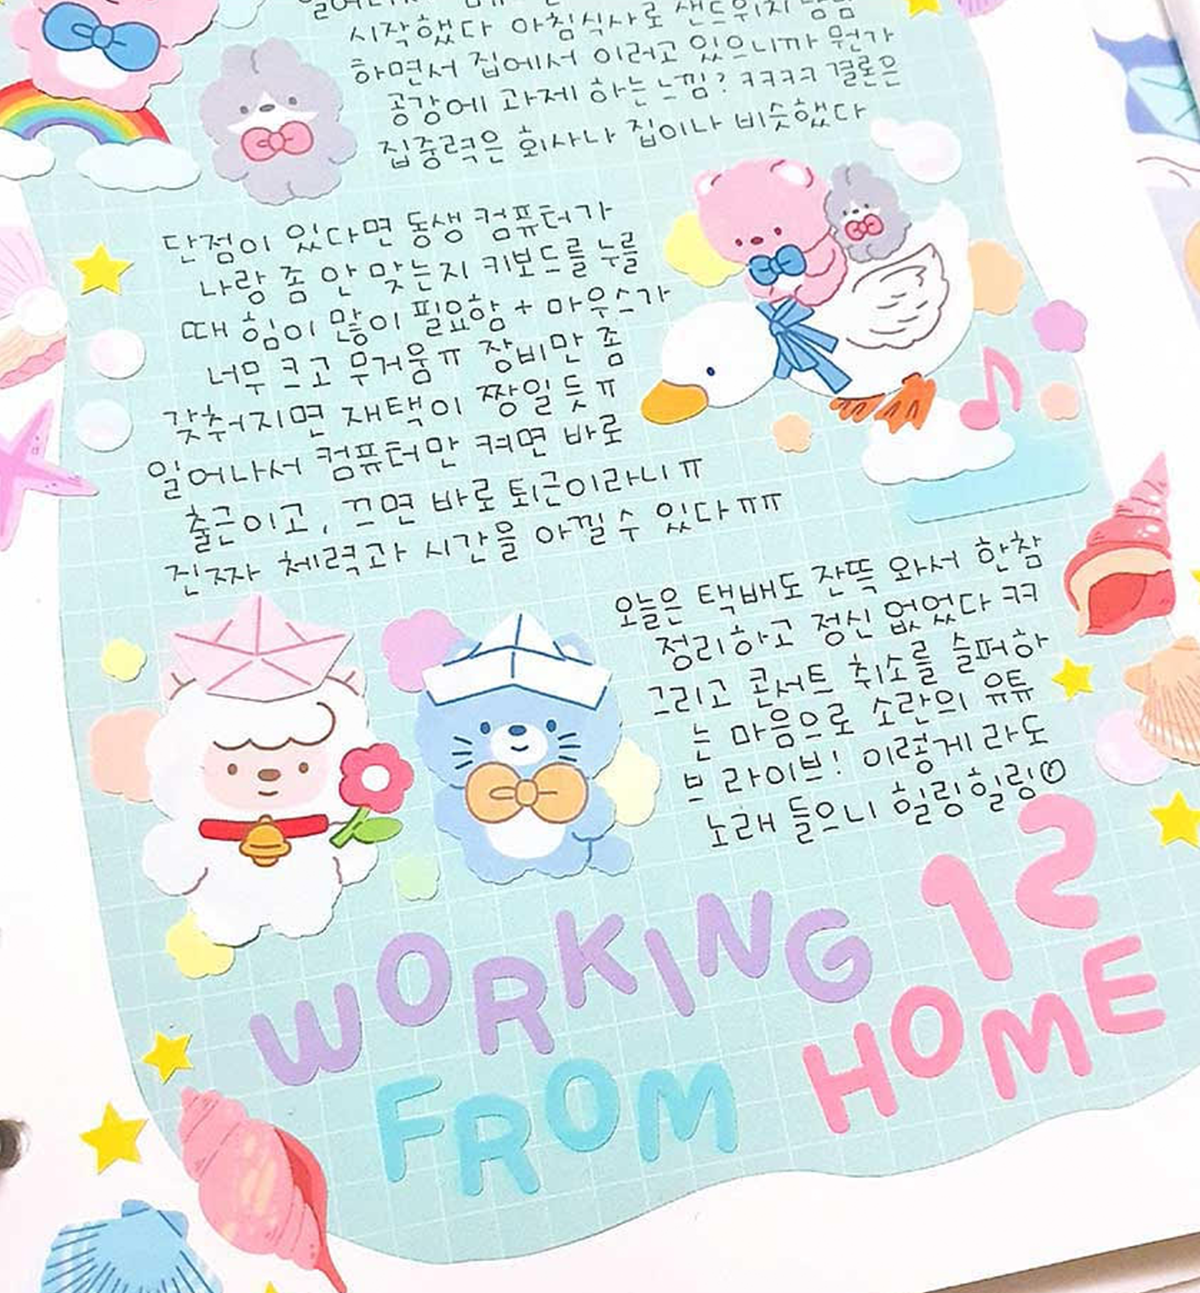 시작했다 아침식사로 샌드위치 냠냠
하면서 집에서 이러고 있으니까 뭔가
공강에 과제 하는 느낌? ㅋㅋㅋㅋ 결론은
집중력은 회사나 집이나 비슷했다
단점이 있다면 동생 컴퓨터가
나랑 좀 안 맞는지 키보드를 누를
때 힘이 많이 필요함 + 마우스가
너무 크고 무거움ㅠ 장비만 좀
갖춰지면 재택이 짱일 듯ㅠ
일어나서 컴퓨터만 켜면 바로
출근이고, 끄면 바로 퇴근이라니ㅠ
진짜 체력과 시간을 아낄 수 있다ㅠㅠ
오늘은 택배도 잔뜩 와서 한참
정리하고 정신 없었다 ㅋㅋ
그리고 콘서트 취소를 슬퍼하
는 마음으로 소란의 유튜
브 라이브! 이렇게 라도
노래 들으니 힐링힐링
12
WORKING
FROM HOME